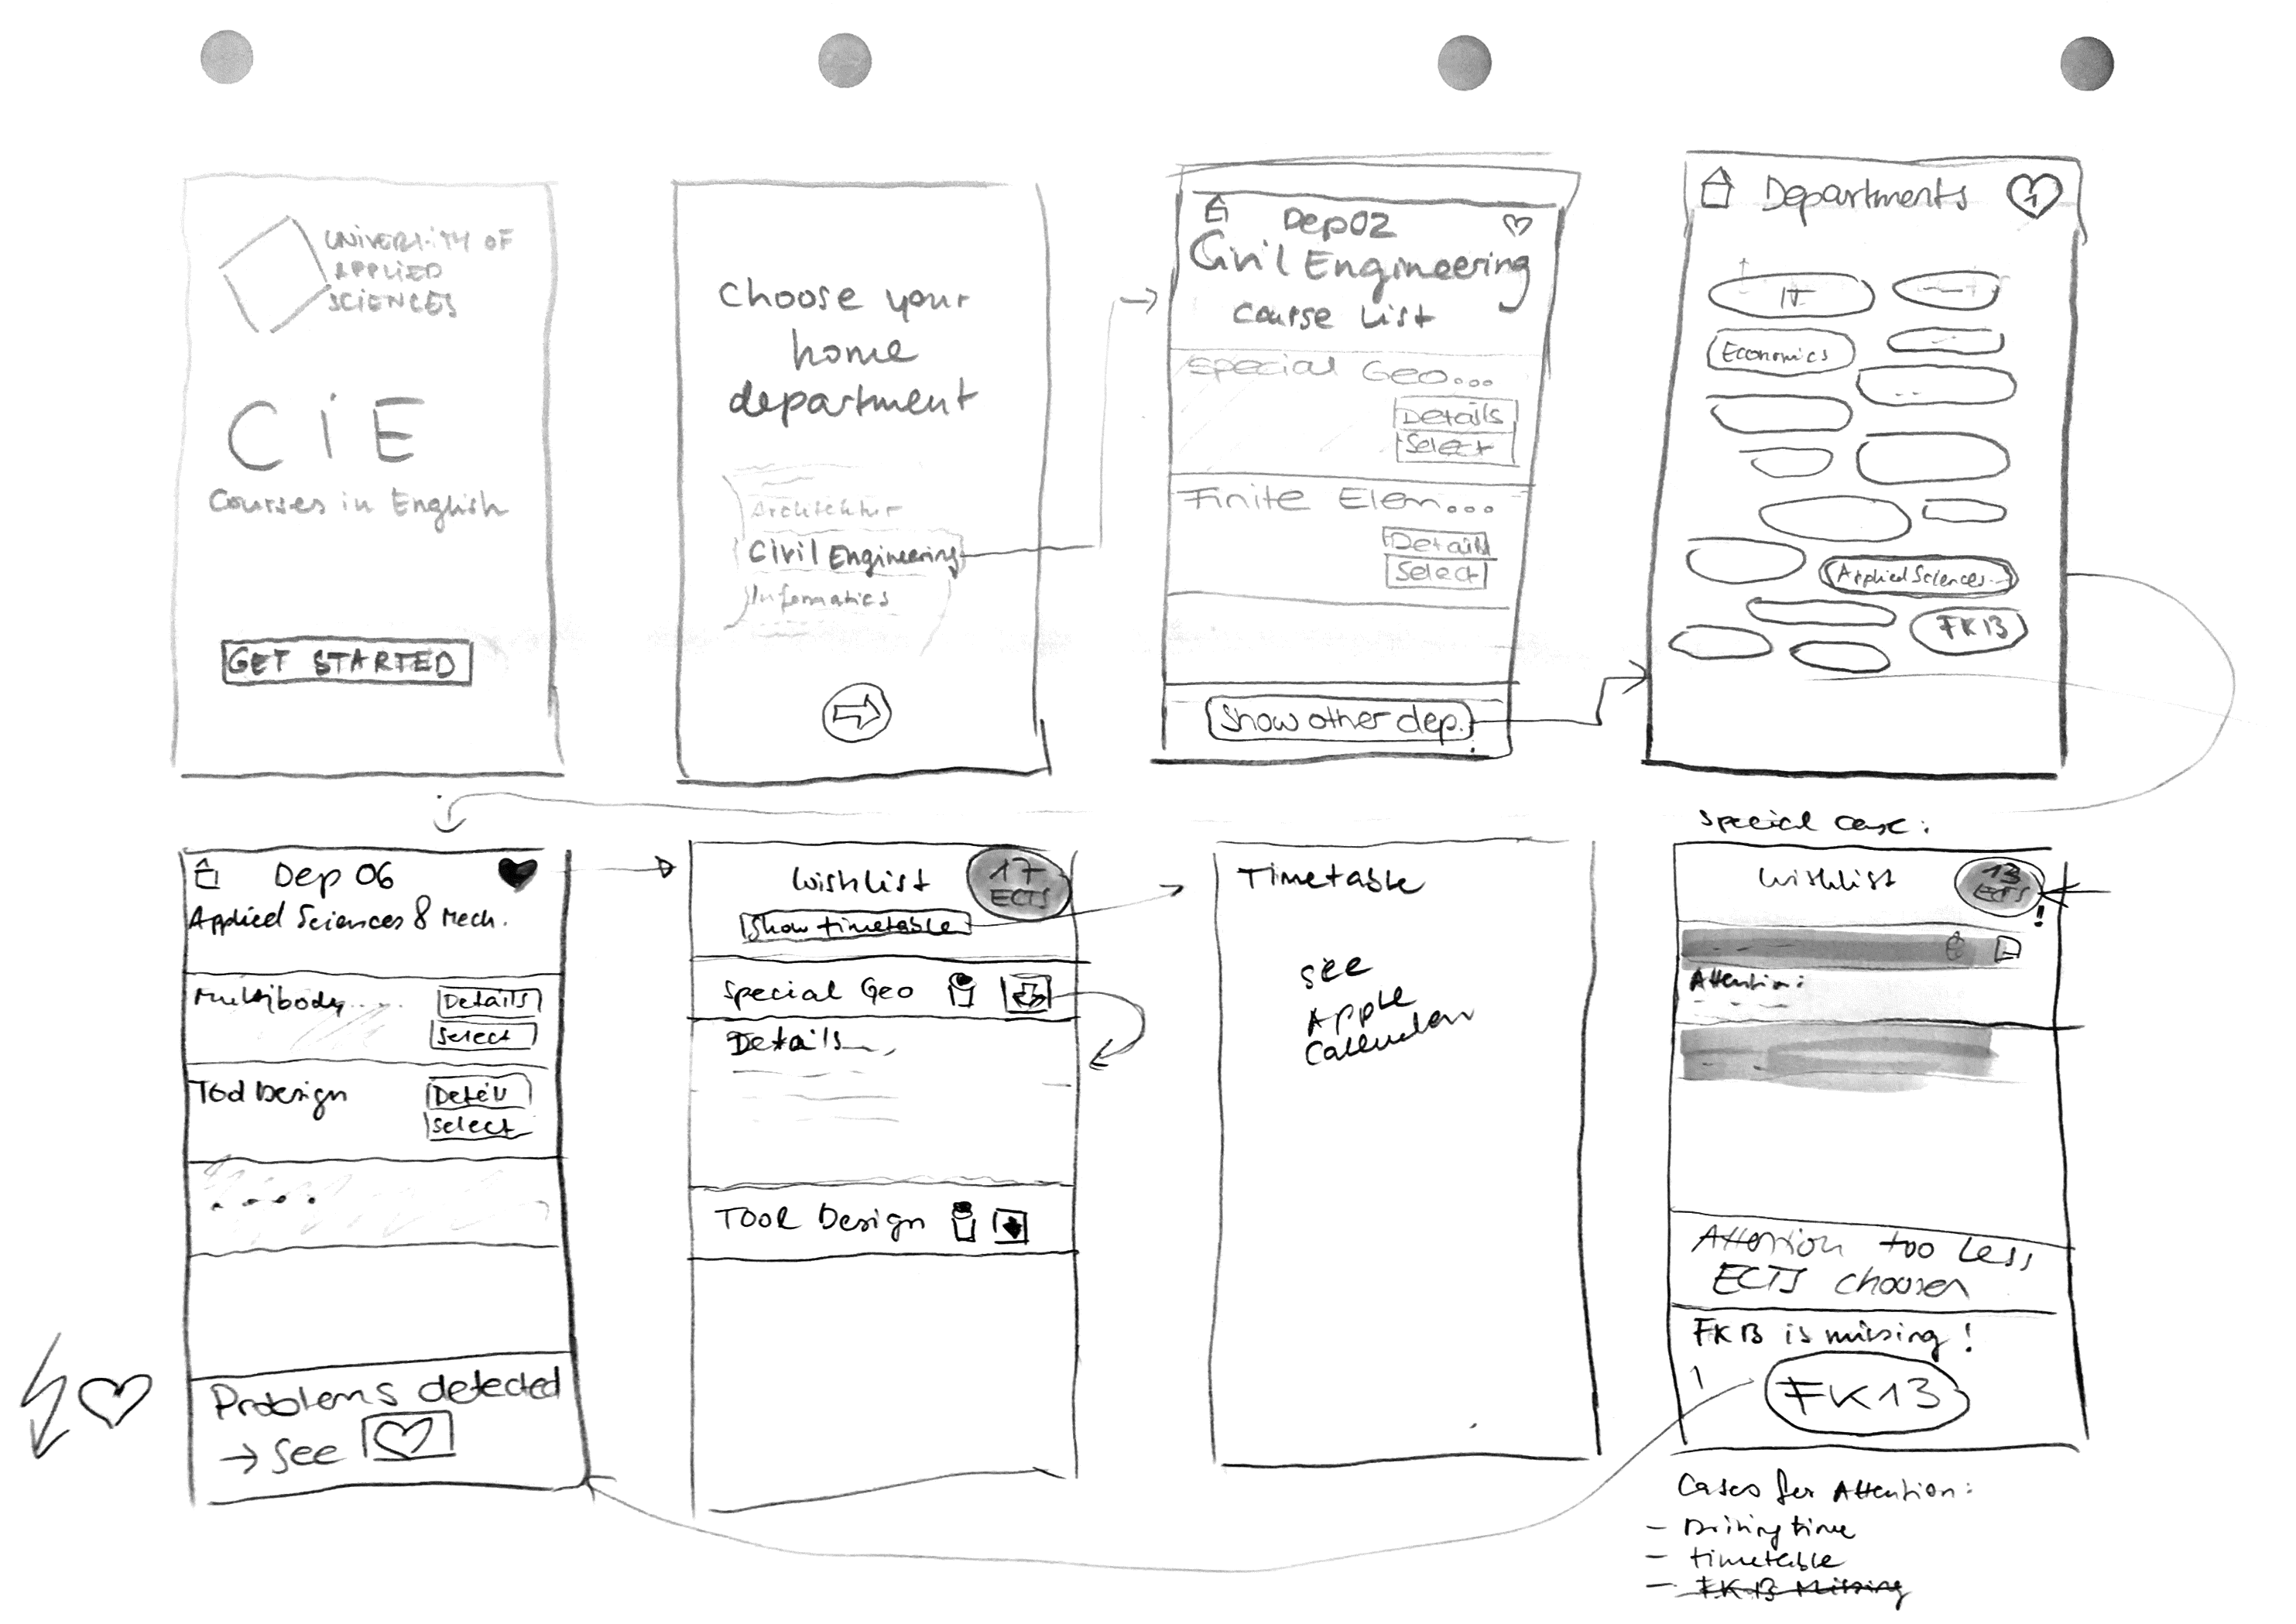 UNIVERSITY OF
APPLIED
SCIENCES
CiE
Courses in English
GET STARTED
Choose your
home
department
Architektur
Civil Engineering
Informatics
Dep02
Civil Engineering
Course List
Special Geo...
Details
Select
Finite Elem...
Details
Select
Show other dep.
Departments
1
IT
Economics
Applied Sciences...
FK13
Dep 06
Applied Sciences & Mech.
Multibody....
Details
Select
Tool Design
Details
Select
....
Problems detected
→ See
Wishlist
17
ECTS
Show timetable
Special Geo
Details
Tool Design
Timetable
see
Apple
Calendar
Special case:
Wishlist
13
ECTS
!
Attention:
Attention too less
ECTS choosen
FK13 is missing!
FK13
Cases for Attention:
- Driving time
- timetable
- FK13 Missing